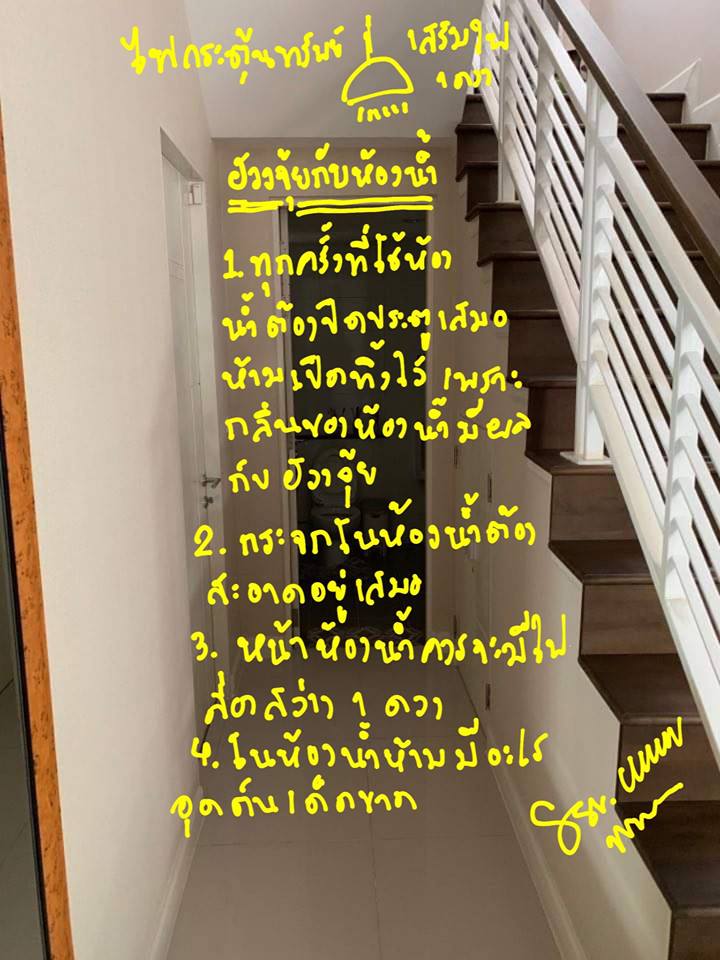 ไฟกระตุ้นทรัพย์
เสริมไฟ
1 ดวง
ฮวงจุ้ยกับห้องน้ำ
1. ทุกครั้งที่ใช้ห้อง
น้ำต้องปิดประตูเสมอ
ห้ามเปิดทิ้งไว้ เพราะ
กลิ่นของห้องน้ำมีผล
กับ ฮวงจุ้ย
2. กระจกในห้องน้ำต้อง
สะอาดอยู่เสมอ
3. หน้าห้องน้ำควรจะมีไฟ
สว่าง 1 ดวง
4. ในห้องน้ำห้ามมีอะไร
อุดตันเด็ดขาด